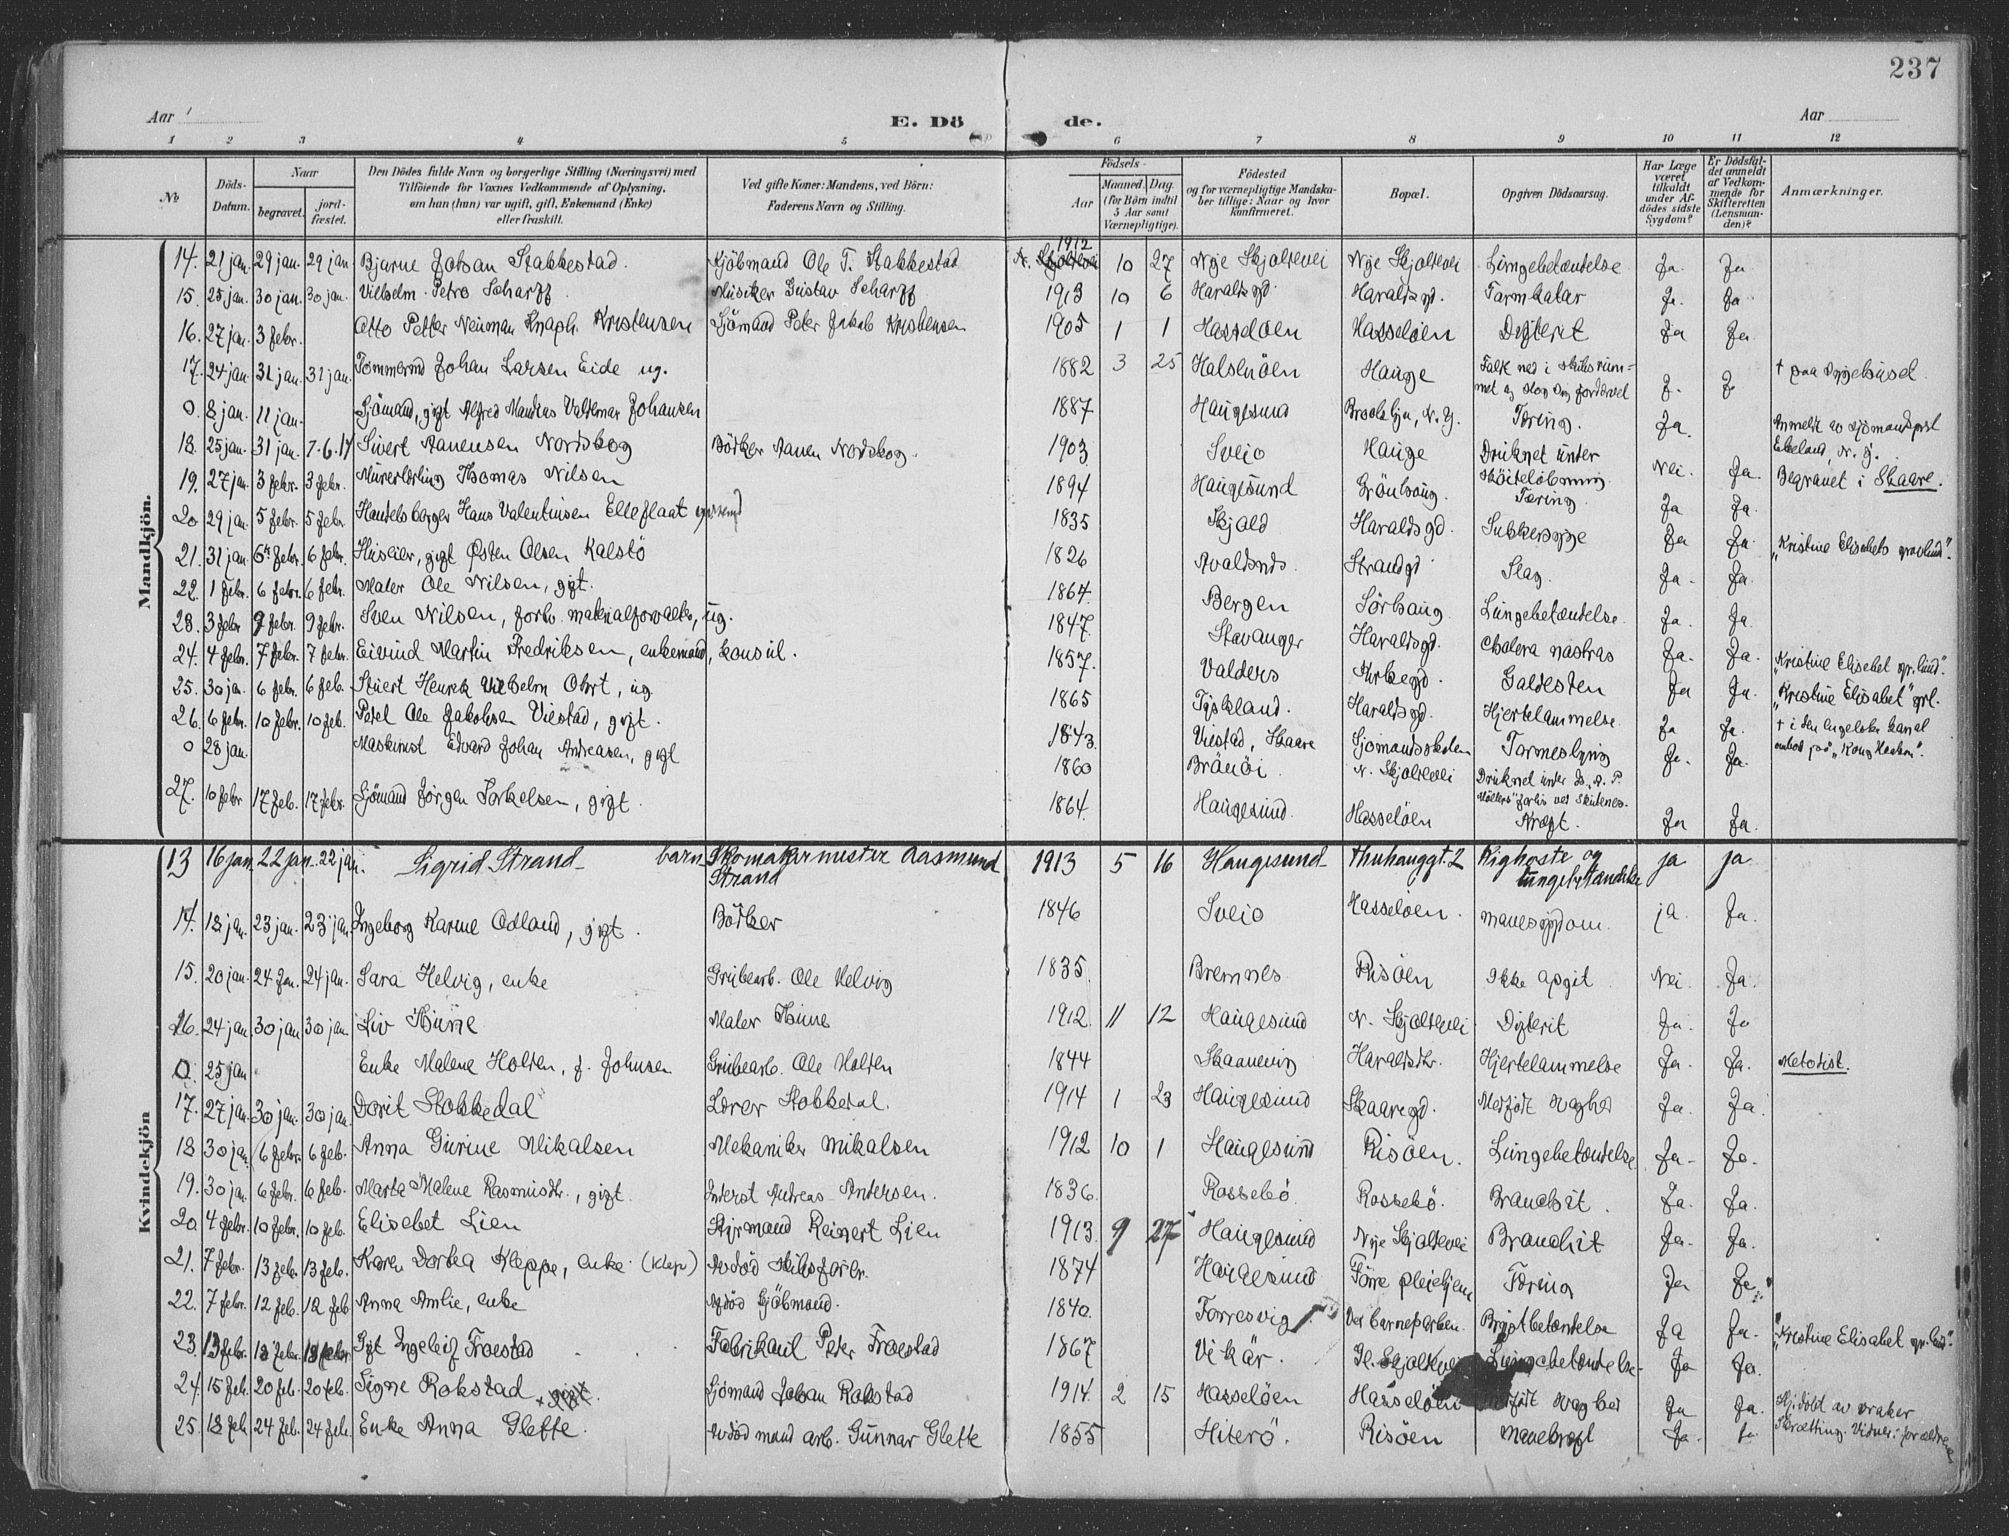 237
Aar
E. Dö de.
Aar
1 2 3 4 5 6 7 8 9 10 11 12
No
Döds-Datum.
Naar
begravet.
jord-fæstet.
Den Dödes fulde Navn og borgerlige Stilling (Næringsvei) med
Tilföiende for Voxnes Vedkommende af Oplysning,
om han (hun) var ugift, gift, Enkemand (Enke)
eller fraskilt.
Ved gifte Koner: Mandens, ved Börn:
Faderens Navn og Stilling.
Födsels-
Aar
Maaned. Dag.
(for Börn indtil
5 Aar samt
Værnepligtige).
Födested
og for værnepligtige Mandska-
ber tillige: Naar og hvor
konfirmeret.
Bopæl.
Opgiven Dödsaarsag.
Har Læge
været
tilkaldt
under Af-
dödes sidste
Sygdom?
Er Dödsfal-
det anmeldt
af Vedkom-
mende for
Skifteretten
(Lensman-
den)?
Anmærkninger.
Mandkjön.
14. 21 jan. 29 jan. 29 jan Bjarne Johan Stakkestad. Kjöbmand Ole T. Stakkestad 1912 10 27 Nye Skjoldevei Nye Skjoldevei Lungebetændelse Ja. Ja
15. 25 jan. 30 jan. 30 jan. Vilhelm Petro Scharff. Musiker Gustav Scharff 1913 10 6 Haraldsgd. Haraldsgd. Tarmkatar Ja. Ja
16. 27 jan 3 febr. Otto Petter Neuman Knaph. Kristensen Sjömand Peter Jakob Kristensen 1905 1 1 Hasseløen Hasseløen Difterit Ja Ja
17. 24 jan. 31 jan. 31 jan. Tömmermd Johan Larsen Eide ug. 1882 3 25 Halsnöen Hauge Falt ned i skibsrum-
met og slog seg fordervet J. J † paa sygehuset
0. 8 jan. 11 jan. Sjömand, gift Alfred Mandias Valdemar Johansen 1887 Haugesund Brooklyn, N. Y. Tæring. Ja. Anmeldt av sjömandsprest
Ekeland, N. Y.
18. 25 jan. 31 jan. 7.6.14 Sivert Aanensen Nordskog Bödker Aanen Nordskog. 1903 Sveio Hauge Druknet under
skøiteløbning Nei. Ja. Begravet i Skaare.
19. 27 jan. 3 febr. 3 febr. Murerlærling Thomas Nilsen 1894 Haugesund Grönhaug. Tæring. Ja Ja.
20 29 jan. 5 febr. 5 febr. Handelsborger Hans Valentinsen Elleflaat 1835 Skjold Haraldsgd. Sukkersyge Ja Ja. "Kristine Elisabets gravlund".
21. 31 jan. 6 febr. 6 febr. Huseier, gift Østen Olsen Kalstö 1826 Avaldsnes. Strandgd Slag. Ja. Ja.
22. 1 febr. 6 febr. 6 febr. Maler Ole Nilsen, gift. 1864. Bergen Sörhaug. Lungebetændelse. Ja. Ja.
23. 3 febr 9 febr. 9 febr. Sven Nilsen, forh. materialforvalter, ug. 1847. Stavanger Haraldsgd. Cholera nostras Ja. Ja.
24. 4 febr. 7 febr. 7 febr. Eivind Martin Fredriksen, enkemand, konsul. 1857. Valders Kirkegd. Galdesten Ja Ja. "Kristine Elisebet gr.lund".
25. 30 jan. 6 febr. 6 feb. Stuert Henrik Vilhelm Ohrt, ug. 1865 Tyskland. Haraldsgd. Hjertelammelse. Ja Ja. "Kristine Elisabet" grl.
26. 6 febr. 10 febr. 10 feb. Pdel Ole Jakobsen Viestad, gift. 1843. Viestad, Skaare Sjömandsskolen Tarmeslyng Ja. Ja. † i den engelske kanal
ombord paa "Kong Haakon".
0 28 jan. Maskinist Edvard Johan Andreasen, gift 1860 Brönöi N. Skjoldevei Druknet under
27. 10 febr 17 feb. 17 febr. Sjömand Jörgen Torkelsen, gift. 1864. Haugesund. Hasseløen Kræft. Ja Ja.
Kvindekjön
13 16 jan 22 jan. 22 jan. Sigrid Strand barn Skomakermester Aasmund
Strand 1913 5 16 Haugesund Thuhauggt. 2 Kighoste og
lungebetændelse ja ja
14. 18 jan. 23 jan. 23 jan Ingeborg Karine Odland, gift. Bödker 1846 Sveio Hasseløen. Mavesygdom. ja. Ja.
15. 20 jan. 24 jan. 24 jan. Sara Helvig, enke Grubearb. Ole Helvig 1835. Bremnes Risöen Ikke opgit Nei. Ja.
16. 24 jan 30 jan 30 jan. Liv Thune Maler Thune 1912. 11 12 Haugesund N. Skjoldevei Difterit Ja. Ja
0. 25 jan Enke Malene Holten, f. Johnsen Grubearb. Ole Holten 1844 Skaanevig Haraldsthr. Hjertelammelse Ja. Ja. Metodist.
17. 27 jan. 30 jan. 30 jan. Dorit Stokkedal Lærer Stokkedal. 1914 1 23 Haugesund Skaaregd. Medfödt svaghed Ja. Ja.
18 30 jan. 6 febr. 6 feb. Anna Gurine Mikalsen Mekaniker Mikalsen 1912 10 1 Haugesund Risöen. Lungebetændelse Ja. Ja.
19. 30 jan. 6 febr. 6 feb. Marta Malene Rasmusdtr., gift. Inderst Andreas Andersen. 1836. Rossebö. Rossebö. Bronchit. Ja. Ja.
20 4 febr. 10 febr. 10 feb. Elisebet Lien Styrmand Reinert Lien 1913. 9 27 Haugesund Nye Skjoldevei Bronchit Ja. Ja.
21. 7 febr. 13 feb. 13 feb. Karen Dortea Kleppe, enke (Klep) Avdöd skibsförer. 1874 Haugesund Förre pleiehjem Tæring Ja Ja.
22. 7 febr. 12 feb. 12 feb Anna Amlie, enke Avdöd Kjöbmand. 1840. Forresvig Ved barneparken. Brystbetændelse Ja Ja. "Kristine Elisabet gr.lund".
23. 13 febr. 18 febr. 18 febr Gift Ingeleif Fraestad Fabrikant Peter Fraestad 1867 Vikör. Gl. Skjoldevei Lungebetændelse Ja Ja.
24. 15 feb. 20 feb. 20 feb. Signe Rokstad gift. Sjömand Johan Rokstad 1914. 2 15 Hasseløen Hasseløen Medfödt svaghed Ja Ja. Hj.döbt av vraker
Skretting. Vidner: forældrene
25. 18 feb. 24 feb. 24 feb. Enke Anna Glette. Avdöd mand arb. Gunnar Glette 1855 Hiterö. Risöen Mavekræft Ja. Ja.